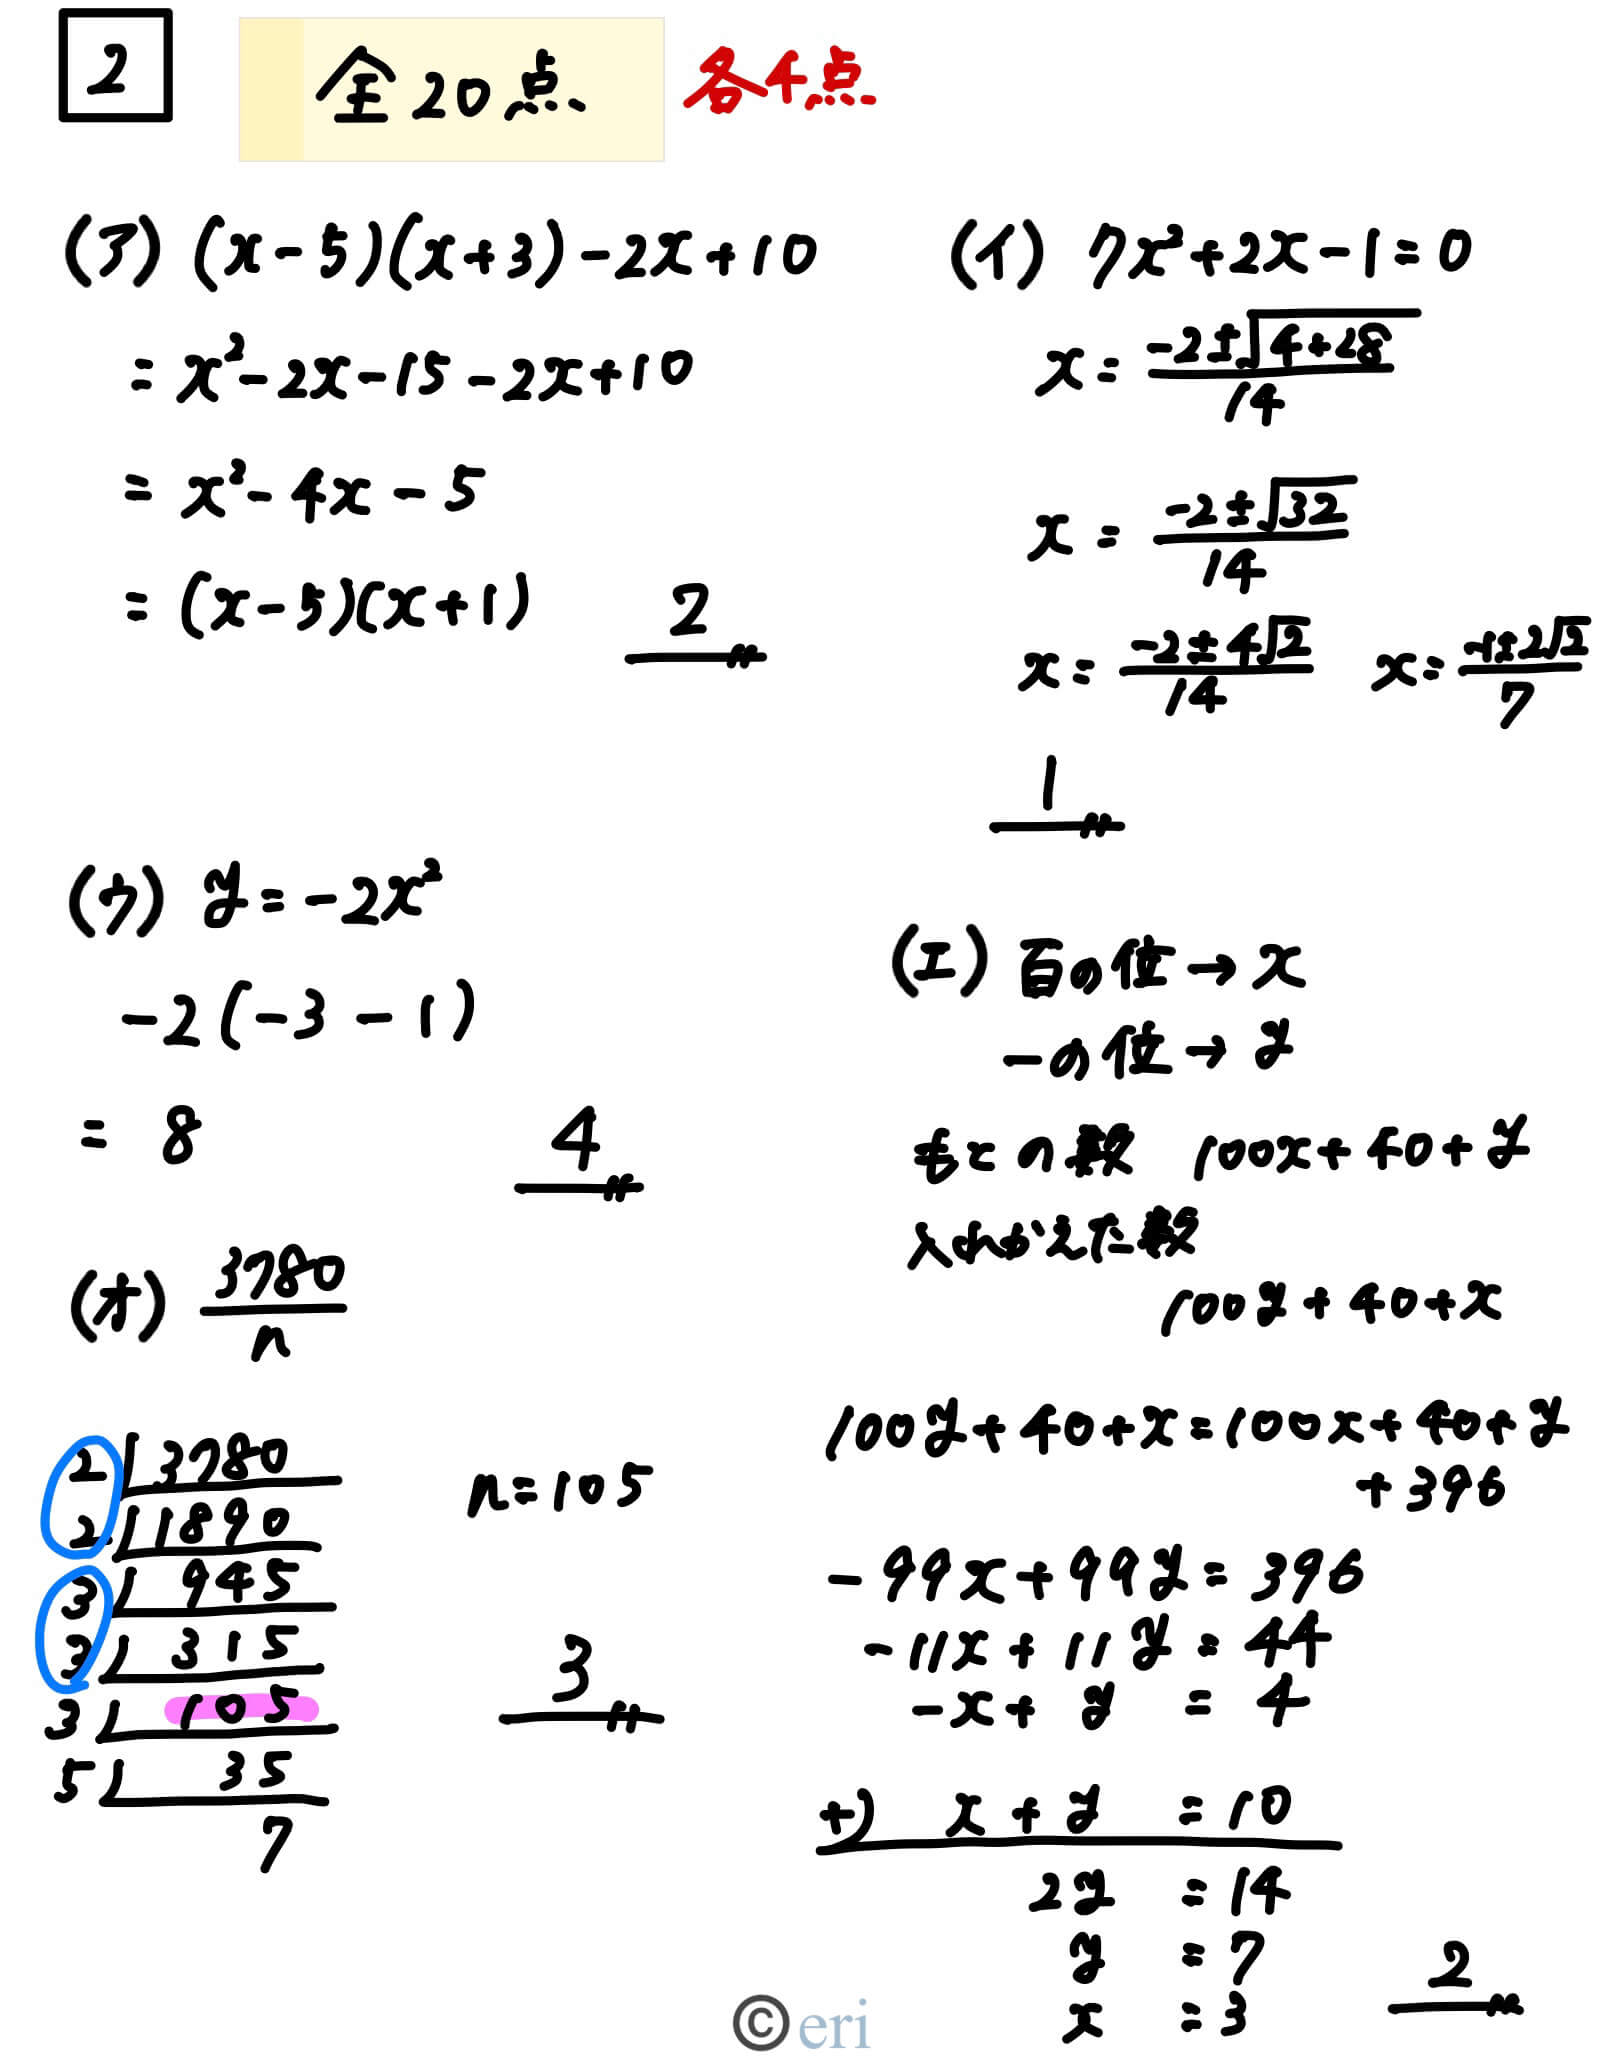 2 全20点 各4点
(ア) (x-5)(x+3)-2x+10
= x²-2x-15-2x+10
= x²-4x-5
= (x-5)(x+1)
2
(イ) 7x²+2x-1=0
x = (-2±√4+28)/14
x = (-2±√32)/14
x = (-2±4√2)/14 x = (-1±2√2)/7
1
(ウ) y=-2x²
-2(-3-1)
= 8
4
(エ) 百の位→x
一の位→y
もとの数 100x+40+y
入れかえた数
100y+40+x
100y+40+x=100x+40+y
+396
-99x+99y=396
-11x+11y=44
-x+y=4
+) x+y=10
2y=14
y=7
x=3
2
(オ) 3780/n
2) 3780
2) 1890
3) 945
3) 315
3) 105
5) 35
7
n=105
3
© eri